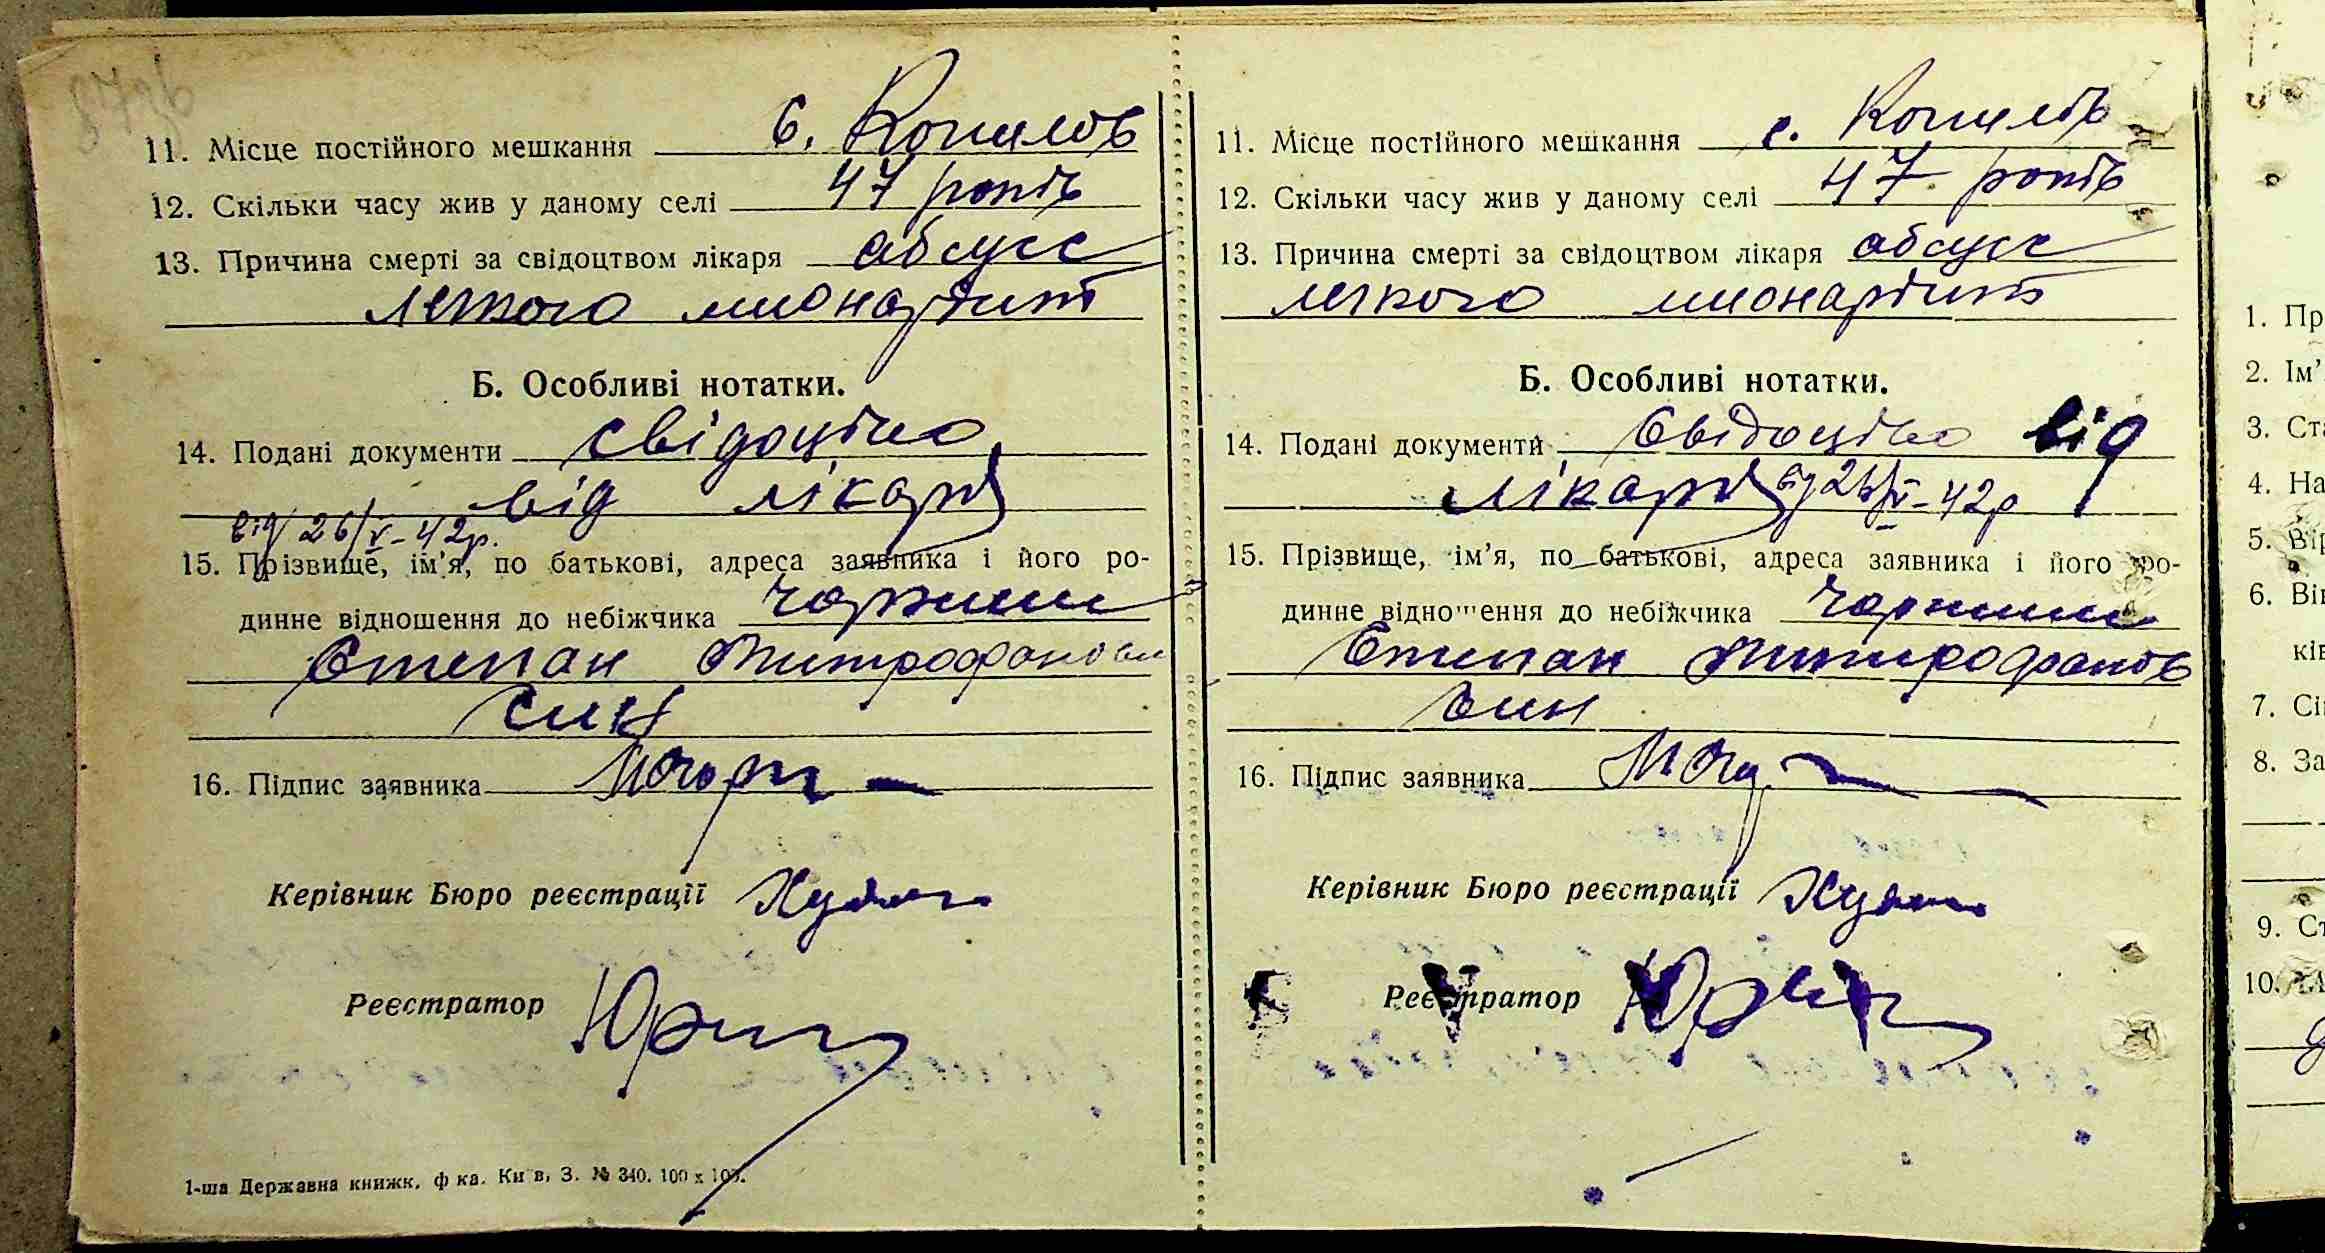 11. Місце постійного мешкання с. Копилов
12. Скільки часу жив у даному селі 47 років
13. Причина смерті за свідоцтвом лікаря абсусс
легкого миокардит
Б. Особливі нотатки.
14. Подані документи свідоцтво
від лікаря
від 26/V-42р.
15. Прізвище, ім'я, по батькові, адреса заявника і його ро-
динне відношення до небіжчика
Степан Митрофанов
син
16. Підпис заявника
Керівник Бюро реєстрації
Реєстратор
1-ша Державна книжк. ф ка. Київ, З. № 340. 100 х 100.
11. Місце постійного мешкання с. Копилів
12. Скільки часу жив у даному селі 47 років
13. Причина смерті за свідоцтвом лікаря абсусс
легкого миокардит
Б. Особливі нотатки.
14. Подані документи Свідоцтво від
лікаря від 26/V-42р
15. Прізвище, ім'я, по батькові, адреса заявника і його ро-
динне відношення до небіжчика
Степан Митрофанов
син
16. Підпис заявника
Керівник Бюро реєстрації
Реєстратор
1. Пр
2. Ім'
3. Ста
4. На
5. Вір
6. Вік
ків
7. Сі
8. За
9. Ст
10.